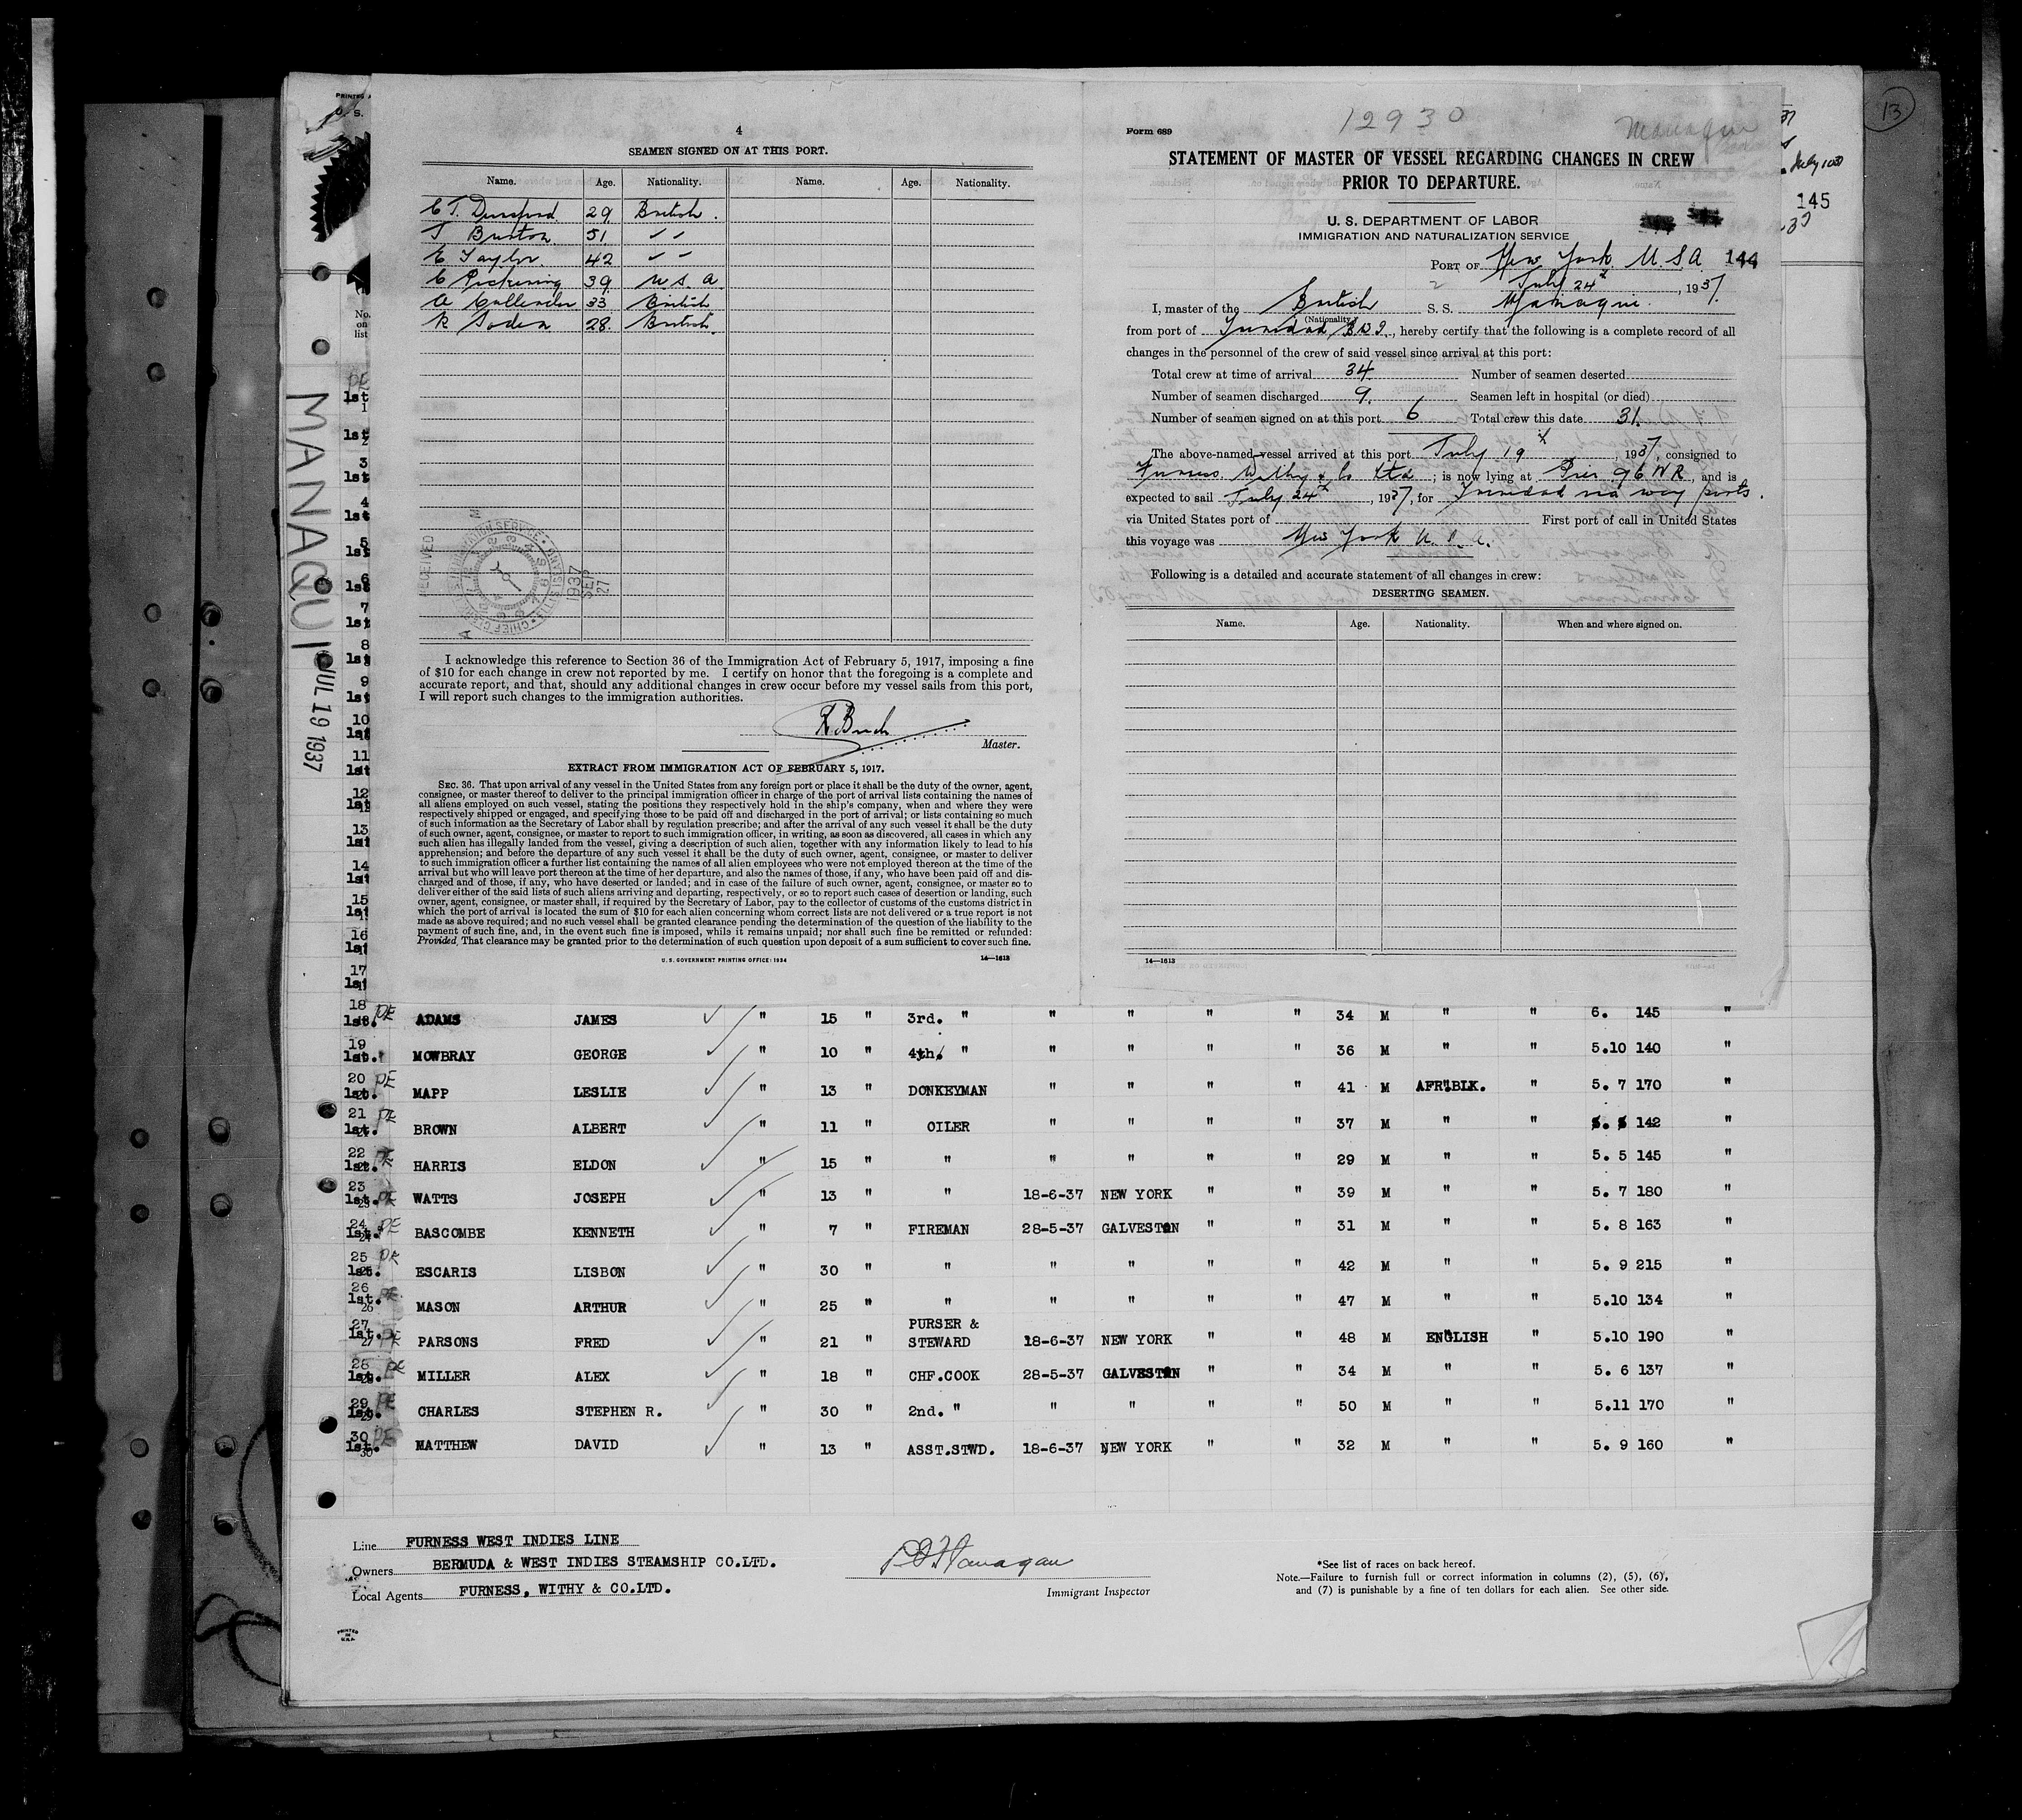 4
SEAMEN SIGNED ON AT THIS PORT.
Name. Age. Nationality. Name. Age. Nationality.
29 British.
T Burton 51 " "
E Taylor. 42 " "
C Pickering 39 U.S.A
A Callender 33 British
R Soden 28. British.
RECEIVED
1937 SEP 27
I acknowledge this reference to Section 36 of the Immigration Act of February 5, 1917, imposing a fine
of $10 for each change in crew not reported by me. I certify on honor that the foregoing is a complete and
accurate report, and that, should any additional changes in crew occur before my vessel sails from this port,
I will report such changes to the immigration authorities.
Master.
EXTRACT FROM IMMIGRATION ACT OF FEBRUARY 5, 1917.
SEC. 36. That upon arrival of any vessel in the United States from any foreign port or place it shall be the duty of the owner, agent,
consignee, or master thereof to deliver to the principal immigration officer in charge of the port of arrival lists containing the names of
all aliens employed on such vessel, stating the positions they respectively hold in the ship's company, when and where they were
respectively shipped or engaged, and specifying those to be paid off and discharged in the port of arrival; or lists containing so much
of such information as the Secretary of Labor shall by regulation prescribe; and after the arrival of any such vessel it shall be the duty
of such owner, agent, consignee, or master to report to such immigration officer, in writing, as soon as discovered, all cases in which any
such alien has illegally landed from the vessel, giving a description of such alien, together with any information likely to lead to his
apprehension; and before the departure of any such vessel it shall be the duty of such owner, agent, consignee, or master to deliver
to such immigration officer a further list containing the names of all alien employees who were not employed thereon at the time of the
arrival but who will leave port thereon at the time of her departure, and also the names of those, if any, who have been paid off and dis-
charged and of those, if any, who have deserted or landed; and in case of the failure of such owner, agent, consignee, or master so to
deliver either of the said lists of such aliens arriving and departing, respectively, or so to report such cases of desertion or landing, such
owner, agent, consignee, or master shall, if required by the Secretary of Labor, pay to the collector of customs of the customs district in
which the port of arrival is located the sum of $10 for each alien concerning whom correct lists are not delivered or a true report is not
made as above required; and no such vessel shall be granted clearance pending the determination of the question of the liability to the
payment of such fine, and, in the event such fine is imposed, while it remains unpaid; nor shall such fine be remitted or refunded:
Provided, That clearance may be granted prior to the determination of such question upon deposit of a sum sufficient to cover such fine.
U. S. GOVERNMENT PRINTING OFFICE: 1934 14—1613
Form 689
12930
Managui
STATEMENT OF MASTER OF VESSEL REGARDING CHANGES IN CREW
PRIOR TO DEPARTURE.
U. S. DEPARTMENT OF LABOR
IMMIGRATION AND NATURALIZATION SERVICE
PORT OF New York. U.S.A. 144
July 24, 1937.
I, master of the British S. S. Managui.
(Nationality)
from port of Trinidad B.W.I., hereby certify that the following is a complete record of all
changes in the personnel of the crew of said vessel since arrival at this port:
Total crew at time of arrival 34. Number of seamen deserted
Number of seamen discharged 9. Seamen left in hospital (or died)
Number of seamen signed on at this port 6 Total crew this date 31.
The above-named vessel arrived at this port July 19, 1937, consigned to
Furness Withy & Co Ltd; is now lying at Pier 96 NR, and is
expected to sail July 24, 1937, for Trinidad via way ports.
via United States port of First port of call in United States
this voyage was New York U.S.A.
Following is a detailed and accurate statement of all changes in crew:
DESERTING SEAMEN.
Name. Age. Nationality. When and where signed on.
14—1613
13
145
MANAQUI
JUL 19 1937
18 1st. PE ADAMS JAMES " 15 " 3rd. " " " " " 34 M " " 6. 145 "
19 1st. MOWBRAY GEORGE " 10 " 4th. " " " " " 36 M " " 5.10 140 "
20 1st. PE MAPP LESLIE " 13 " DONKEYMAN " " " " 41 M AFR.BLK. " 5. 7 170 "
21 1st. PE BROWN ALBERT " 11 " OILER " " " " 37 M " " 142 "
22 1st. PE HARRIS ELDON " 15 " " " " " " 29 M " " 5. 5 145 "
23 1st. PE WATTS JOSEPH " 13 " " 18-6-37 NEW YORK " " 39 M " " 5. 7 180 "
24 1st. PE BASCOMBE KENNETH " 7 " FIREMAN 28-5-37 GALVESTON " " 31 M " " 5. 8 163 "
25 1st. PE ESCARIS LISBON " 30 " " " " " " 42 M " " 5. 9 215 "
26 1st. PE MASON ARTHUR " 25 " " " " " " 47 M " " 5.10 134 "
27 1st. PE PARSONS FRED " 21 " PURSER & STEWARD 18-6-37 NEW YORK " " 48 M ENGLISH " 5.10 190 "
28 1st. PE MILLER ALEX " 18 " CHF.COOK 28-5-37 GALVESTON " " 34 M " " 5. 6 137 "
29 1st. PE CHARLES STEPHEN R. " 30 " 2nd. " " " " " 50 M " " 5.11 170 "
30 1st. PE MATTHEW DAVID " 13 " ASST.STWD. 18-6-37 NEW YORK " " 32 M " " 5. 9 160 "
Line FURNESS WEST INDIES LINE
Owners BERMUDA & WEST INDIES STEAMSHIP CO.LTD.
Local Agents FURNESS, WITHY & CO.LTD.
Immigrant Inspector
*See list of races on back hereof.
Note.—Failure to furnish full or correct information in columns (2), (5), (6),
and (7) is punishable by a fine of ten dollars for each alien. See other side.
PRINTED IN U.S.A.